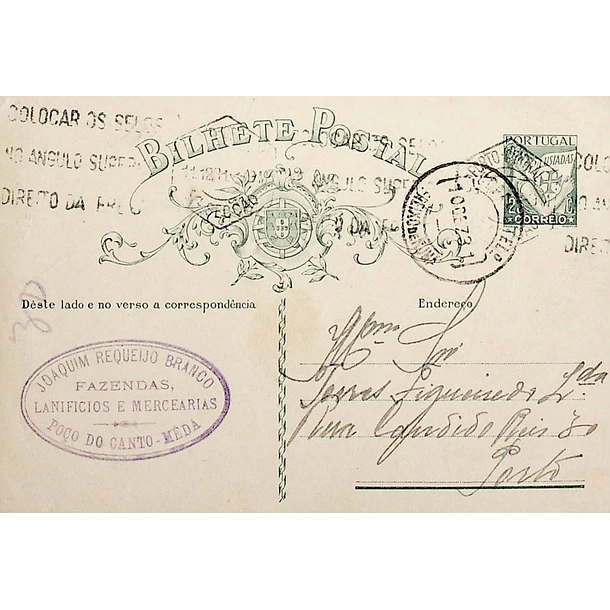 COLOCAR OS SELOS
NO ANGULO SUPER
DIREITO DA FRE
BILHETE POSTAL
PORTUGAL
LUSIADAS
CORREIO
COLO
NO AV
DIREITO
Dêste lado e no verso a correspondência
Endereço
JOAQUIM REQUEIJO BRANCO
FAZENDAS,
LANIFICIOS E MERCEARIAS
POÇO DO CANTO-MÊDA
Exmo Snr
Torres Figueiredo Lda
Rua Candido Reis 30
Porto